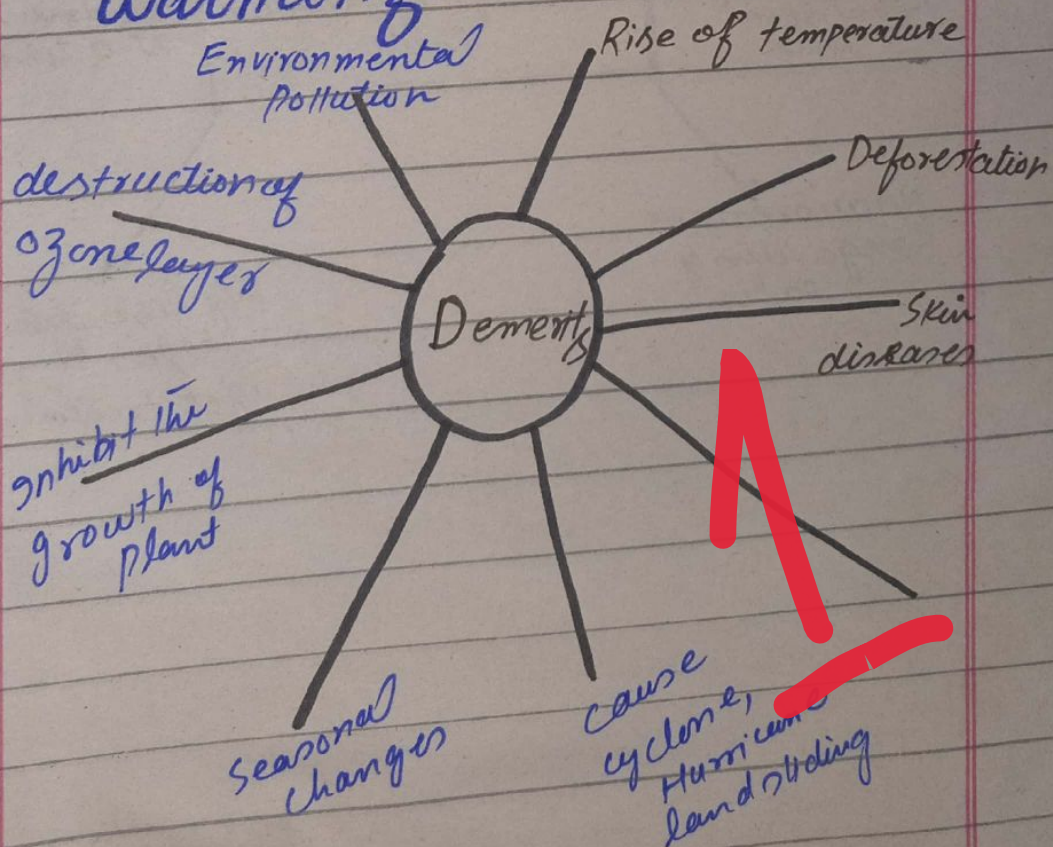 Warming
Environmental
Pollution
Rise of temperature
Deforestation
destruction of
ozone layer
Demerits
Skin
diseases
Inhibit the
growth of
plant
Seasonal
changes
cause
cyclone,
Hurricane
landsliding